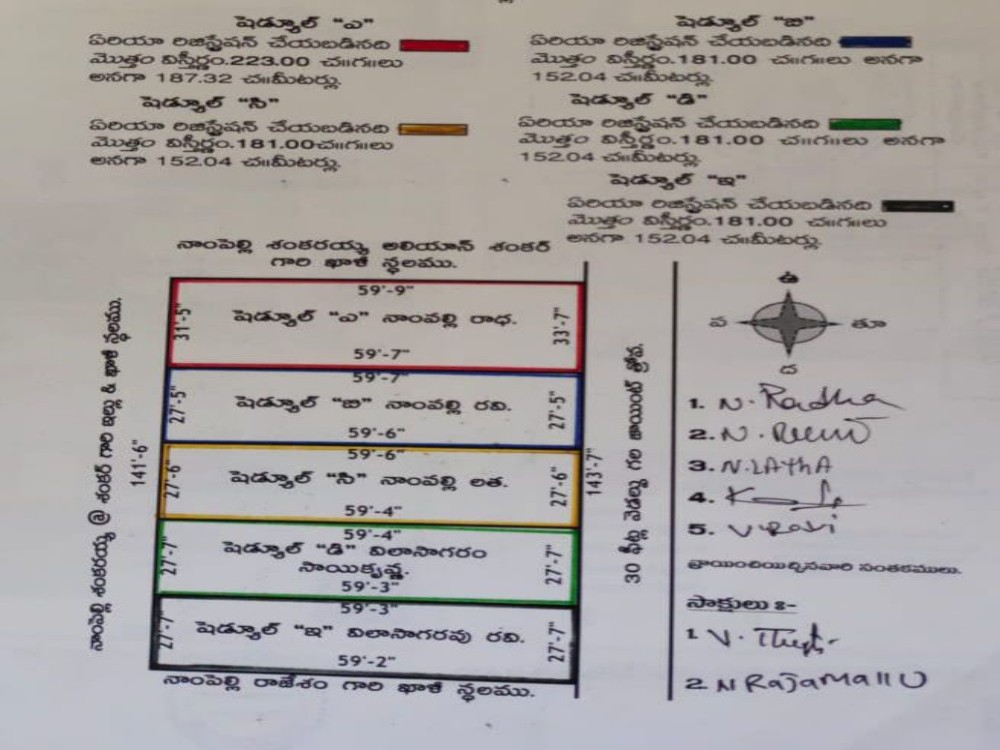 షెడ్యూల్ "ఎ"
ఏరియా రిజిస్ట్రేషన్ చేయబడినది
మొత్తం విస్తీర్ణం.223.00 చ॥గ॥లు
అనగా 187.32 చ॥మీటర్లు.
షెడ్యూల్ "బి"
ఏరియా రిజిస్ట్రేషన్ చేయబడినది
మొత్తం విస్తీర్ణం.181.00 చ॥గ॥లు అనగా
152.04 చ॥మీటర్లు.
షెడ్యూల్ "సి"
ఏరియా రిజిస్ట్రేషన్ చేయబడినది
మొత్తం విస్తీర్ణం.181.00చ॥గ॥లు
అనగా 152.04 చ॥మీటర్లు.
షెడ్యూల్ "డి"
ఏరియా రిజిస్ట్రేషన్ చేయబడినది
మొత్తం విస్తీర్ణం.181.00 చ॥గ॥లు అనగా
152.04 చ॥మీటర్లు.
షెడ్యూల్ "ఇ"
ఏరియా రిజిస్ట్రేషన్ చేయబడినది
మొత్తం విస్తీర్ణం.181.00 చ॥గ॥లు
అనగా 152.04 చ॥మీటర్లు.
నాంపెల్లి శంకరయ్య అలియాస్ శంకర్
గారి ఖాళీ స్థలము.
నాంపెల్లి శంకరయ్య @ శంకర్ గారి ఇల్లు & ఖాళీ స్థలము.
141'-6"
59'-9"
31'-5"
షెడ్యూల్ "ఎ" నాంపల్లి రాధ.
33'-7"
59'-7"
59'-7"
27'-5"
షెడ్యూల్ "బి" నాంపల్లి రవి.
27'-5"
59'-6"
59'-6"
27'-6"
షెడ్యూల్ "సి" నాంపల్లి లత.
27'-6"
59'-4"
59'-4"
27'-7"
షెడ్యూల్ "డి" విలాసాగరం
సాయికృష్ణ.
27'-7"
59'-3"
59'-3"
27'-7"
షెడ్యూల్ "ఇ" విలాసాగరపు రవి.
27'-7"
59'-2"
నాంపెల్లి రాజేశం గారి ఖాళీ స్థలము.
143'-7"
30 ఫీట్ల వెడల్పు గల జాయింట్ త్రోవ.
ఉ
ప
తూ
ద
1. N. Radha
2. N.
3. N.LATHA
4.
5. V Ravi
వ్రాయించియిచ్చినవారి సంతకములు.
సాక్షులు :-
1 V.
2 N RAJAMALLU